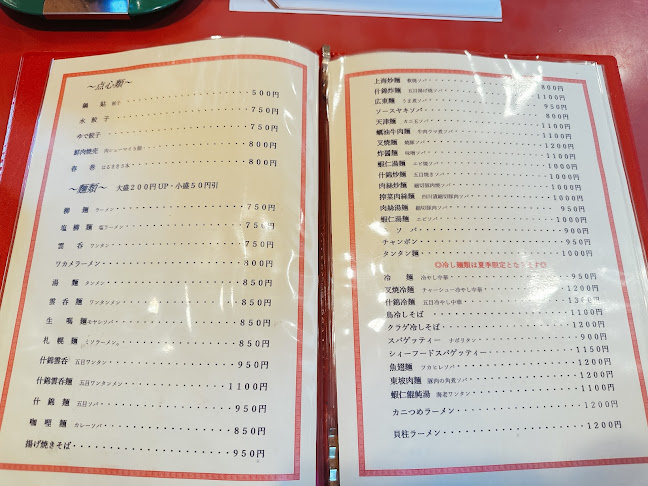 ～点心類～
鍋貼 餃子 500円
水餃子 750円
ゆで餃子 750円
鮮肉焼売 肉シューマイ5個 800円
春巻 はるまき3本 800円
～麺類～ 大盛200円UP・小盛50円引
柳麺 ラーメン 750円
塩柳麺 塩ラーメン 750円
雲呑 ワンタン 750円
ワカメラーメン 800円
湯麺 タンメン 850円
雲呑麺 ワンタンメン 850円
生嗎麺 モヤシソバ 850円
札幌麺 ミソラーメン 850円
什錦雲呑 五目ワンタン 950円
什錦雲呑麺 五目ワンタンメン 1100円
什錦麺 五目ソバ 950円
咖喱麺 カレーソバ 850円
揚げ焼きそば 950円
上海炒麺 軟焼ソバ 800円
什錦炸麺 五目揚げ焼ソバ 1100円
広東麺 うま煮ソバ 1000円
ソースヤキソバ 950円
天津麺 カニ玉ソバ 800円
蠣油牛肉麺 牛肉ウマ煮ソバ 1100円
叉焼麺 焼豚ソバ 1000円
炸醤麺 味噌ソバ 1000円
蝦仁湯麺 エビ焼ソバ 1000円
什錦炒麺 五目焼きソバ 1000円
肉絲炒麺 細切豚肉焼ソバ 1000円
搾菜肉絲麺 四川漬細切豚肉ソバ 1000円
肉絲湯麺 細切豚肉ソバ 950円
蝦仁湯麺 エビソバ 1000円
ソバ 900円
チャンポン 950円
タンタン麺 1000円
◎冷し麺類は夏季限定となります◎
冷麺 冷やし中華 950円
叉焼冷麺 チャーシュー冷やし中華 1200円
什錦冷麺 五目冷やし中華 1300円
鳥冷しそば 1100円
クラゲ冷しそば 1200円
スパゲッティー ナポリタン 900円
シィーフードスパゲッティー 1150円
魚翅麺 フカヒレソバ 1200円
東坡肉麺 豚肉の角煮ソバ 1200円
蝦仁餛飩湯 海老ワンタン 1100円
カニつめラーメン 1200円
貝柱ラーメン 1200円